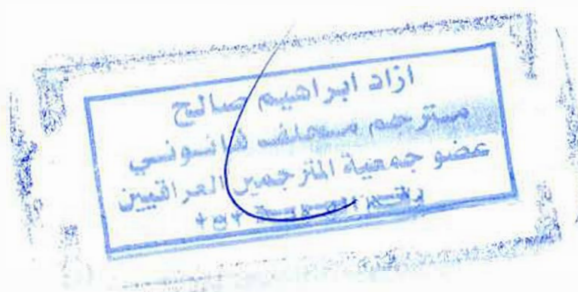 ازاد ابراهيم صالح
مترجم محلف قانوني
عضو جمعية المترجمين العراقيين
رقم العضوية